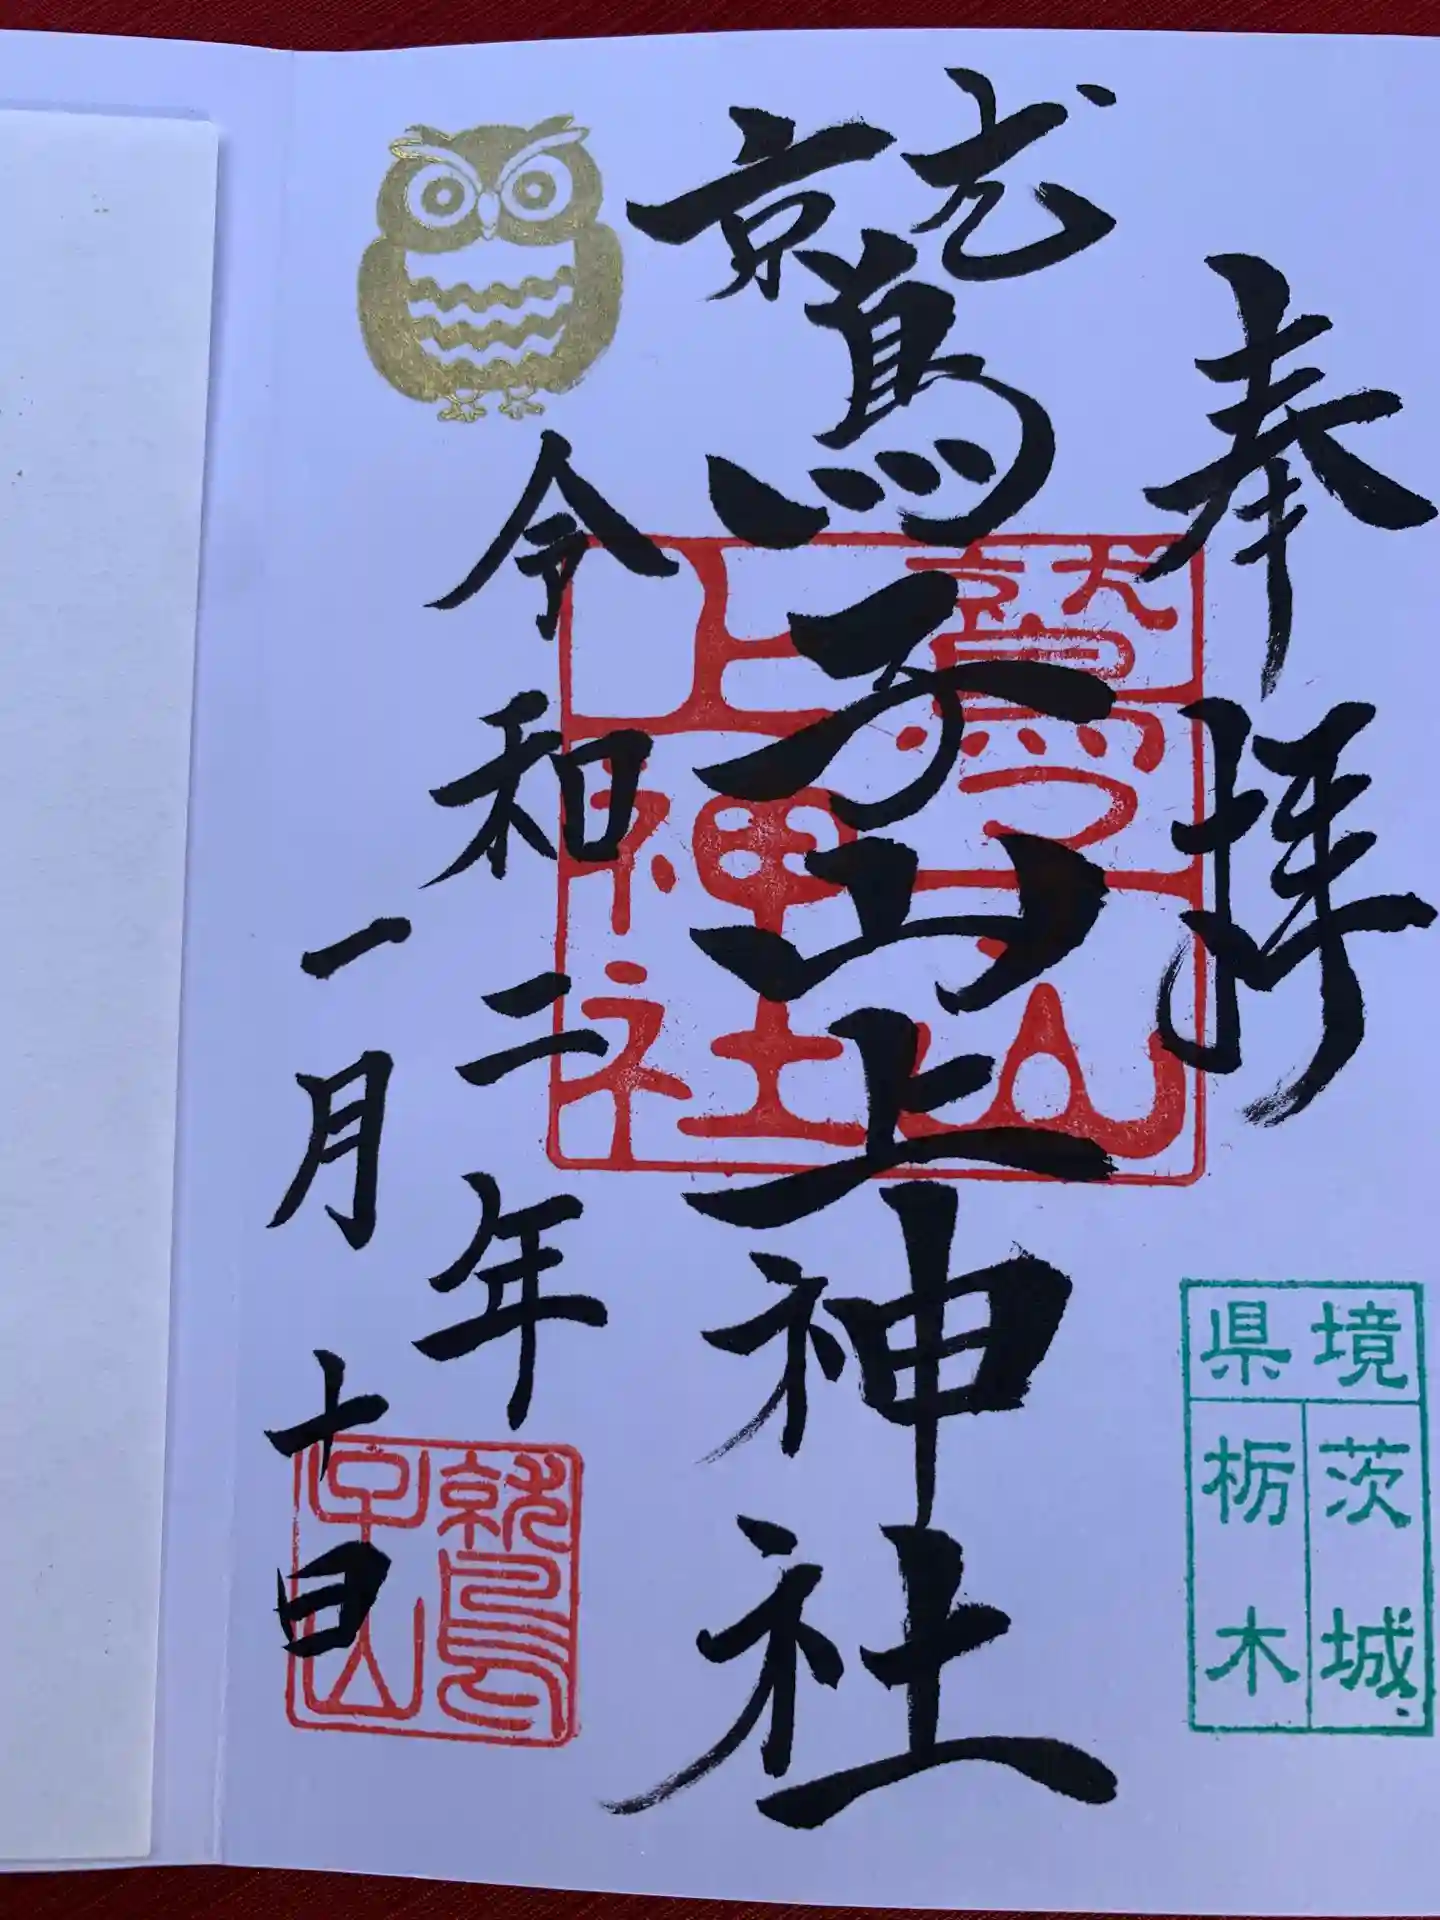 奉拝
鷲子山上神社
令和二年
一月十日
鷲子山
上神社
県境
茨城
栃木
鷲
子山